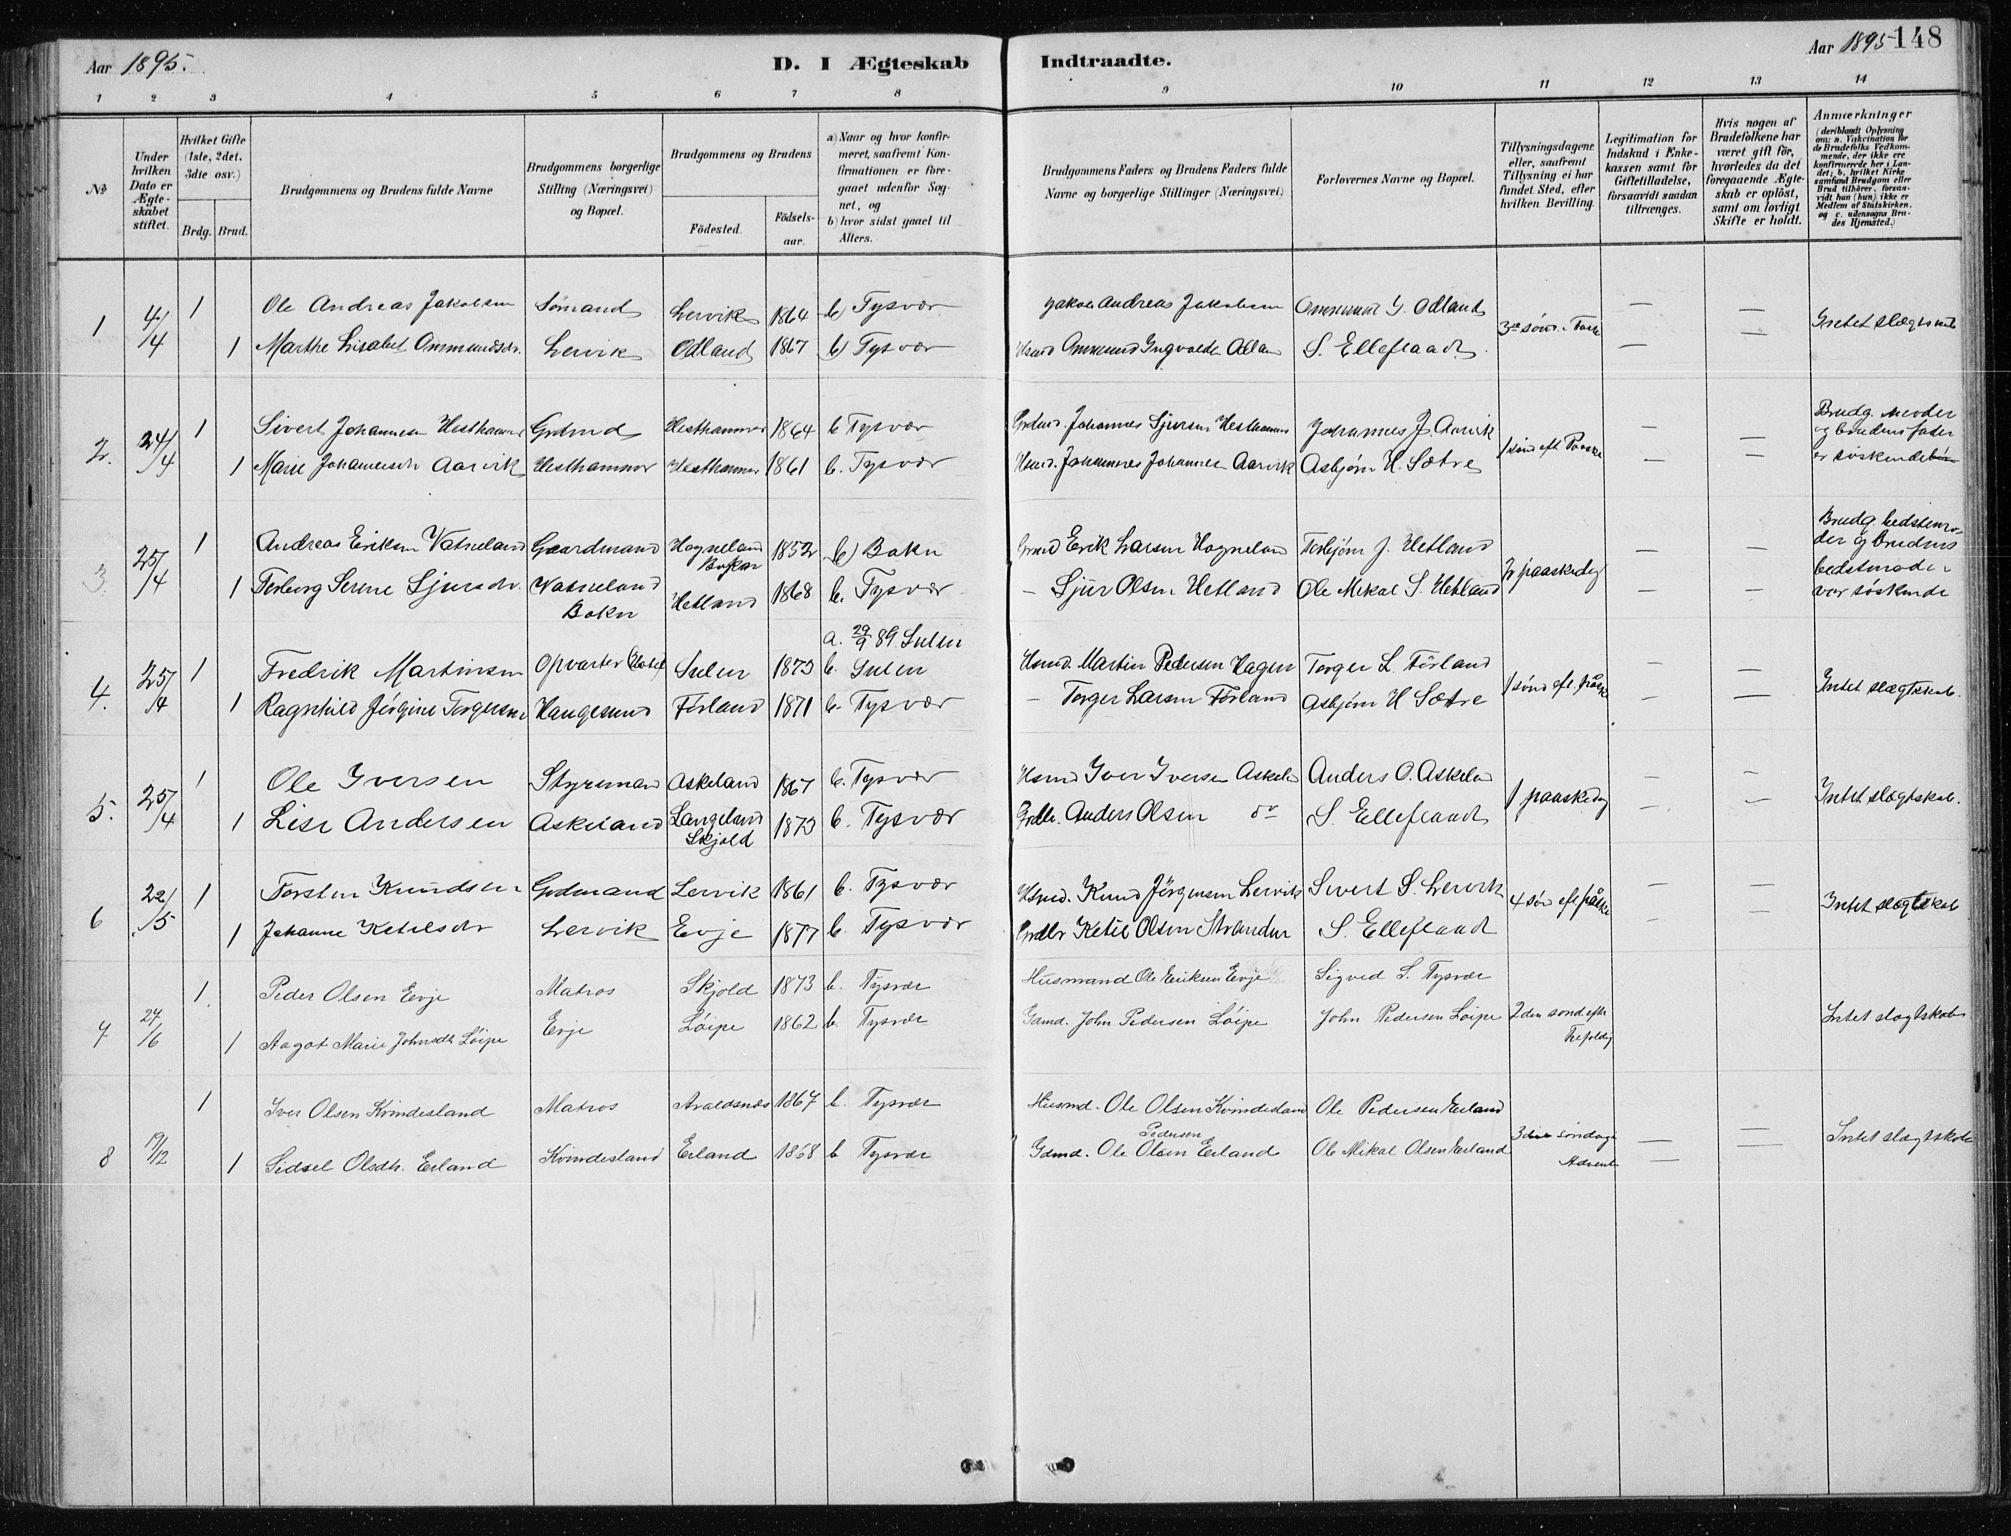 Aar 1895.
D. I Ægteskab Indtraadte.
Aar 1895 148
1 2 3 4 5 6 7 8 9 10 11 12 13 14
No
Under hvilken Dato er Ægteskabet stiftet.
Hvilket Gifte (1ste, 2det, 3die osv.)
Brdg. Brud.
Brudgommens og Brudens fulde Navne
Brudgommens borgerlige Stilling (Næringsvei) og Bopæl.
Brudgommens og Brudens
Födested.
Födselsaar.
a) Naar og hvor konfirmeret, saafremt Konfirmationen er foregaaet udenfor Sognet, og
b) hvor sidst gaaet til Alters.
Brudgommens Faders og Brudens Faders fulde Navne og borgerlige Stillinger (Næringsvei)
Forlovernes Navne og Bopæl.
Tillysningsdagene eller, saafremt Tillysning ei har fundet Sted, efter hvilken Bevilling.
Legitimation for Indskud i Enkekassen samt for Giftetilladelse, forsaavidt saadan tiltrænges.
Hvis nogen af Brudefolkene har været gift før, hvorledes da det foregaaende Ægteskab er oplöst, samt om lovligt Skifte er holdt.
Anmærkninger (deriblandt Oplysning om: a. Vakcination for de Brudefolks Vedkommende, der ikke ere konfirmerede her i Landet; b. hvilket Kirkesamfund Brudgom eller Brud tilhører, forsaavidt han (hun) ikke er Medlem af Statskirken, og c. udensogns Brudes Hjemsted.)
1 4/4 1 Ole Andreas Jakobsen Sømand Lervik 1864 b) Tysvær Jakob Andreas Jakobsen Ommund G. Odland 3die sønd. i Faste — — Intet slægtskab
1 Marthe Lisabet Ommundsdr. Lervik Odland 1867 b) Tysvær Husmd Ommund Ingvaldsn Odland S. Elleflaadt — —
2. 24/4 1 Sivert Johannesen Hesthammer Grdmd Hesthammer 1864 b Tysvær Grdmd. Johannes Sjursen Hesthammer Johannes J. Aarvik 1 sønd eft Paaske — — Brudg. moder og brudens fader er søskendebörn
1 Marie Johannesdr Aarvik Hesthammer Hesthammer 1861 b. Tysvær Husmd. Johannes Johannesen Aarvik Asbjørn H. Sætre — —
3. 25/4 1 Andreas Eriksen Vatneland Gaardmand Hogneland Bokn 1852 b) Bokn Grmd Erik Larsen Hogneland Torbjørn J. Hetland 2 paaskedag — — Brudg. bedstemoder og Brudens bedstemoder var søskende
1 Torborg Serene Sjursdr. Vatneland Bokn Hetland 1868 b. Tysvær — Sjur Olsen Hetland Ole Mikal S. Hetland — —
4. 25/4 1 Fredrik Martinsen Opvarter (Hotel) Sulen 1873 a. 29/9 89. Sulen b. Sulen Husmd. Martin Pedersen Hagen Torger L. Førland 1 sønd eft. påske — — Intet slægtskab.
1 Ragnhild Jørgine Torgersen Haugesund Førland 1871 b. Tysvær — Torger Larsen Førland Asbjørn H Sætre — —
5. 25/4 1 Ole Iversen Styrmand Askeland 1867 b. Tysvær Husmd Iver Iversen Askeland Anders O. Askeland 1 paaskedag — — Intet slægtskab.
1 Lise Andersen Askeland Langeland Skjold 1873 b. Tysvær Grdbr. Anders Olsen do S. Elleflaadt — —
6 22/5 1 Torsten Knudsen Grdmand Lervik 1861 b. Tysvær Husmd. Knud Jørgensen Lervik Sivert S. Lervik 4 sønd eft påske — — Intet slægtskab
1 Johanne Ketelsdr Lervik Evje 1877 b. Tysvær Grdbr Ketil Olsen Stranden S. Elleflaadt — —
7 27/6 1 Peder Olsen Evje Matros Skjold 1873 b. Tysvær Husmand Ole Eriksen Evje Sigved S. Tysvær 2den sønd eftr Trefoldig Intet slægtskab
1 Aagot Marie Johnsdtr Løipe Evje Løipe 1862 b. Tysvær Gdmd. John Pedersen Løipe John Pedersen Løipe
8 19/12 1 Iver Olsen Kvindesland Matros Avaldsnæs 1867 b. Tysvær Husmd. Ole Olsen Kvindesland Ole Pedersen Erland 3die søndag Advent — — Intet slægtskab
1 Sidsel Olsdtr. Erland Kvindesland Erland 1868 b Tysvær Gdmd. Ole Pedersen Olsen Erland Ole Mikal Olsen Erland — —